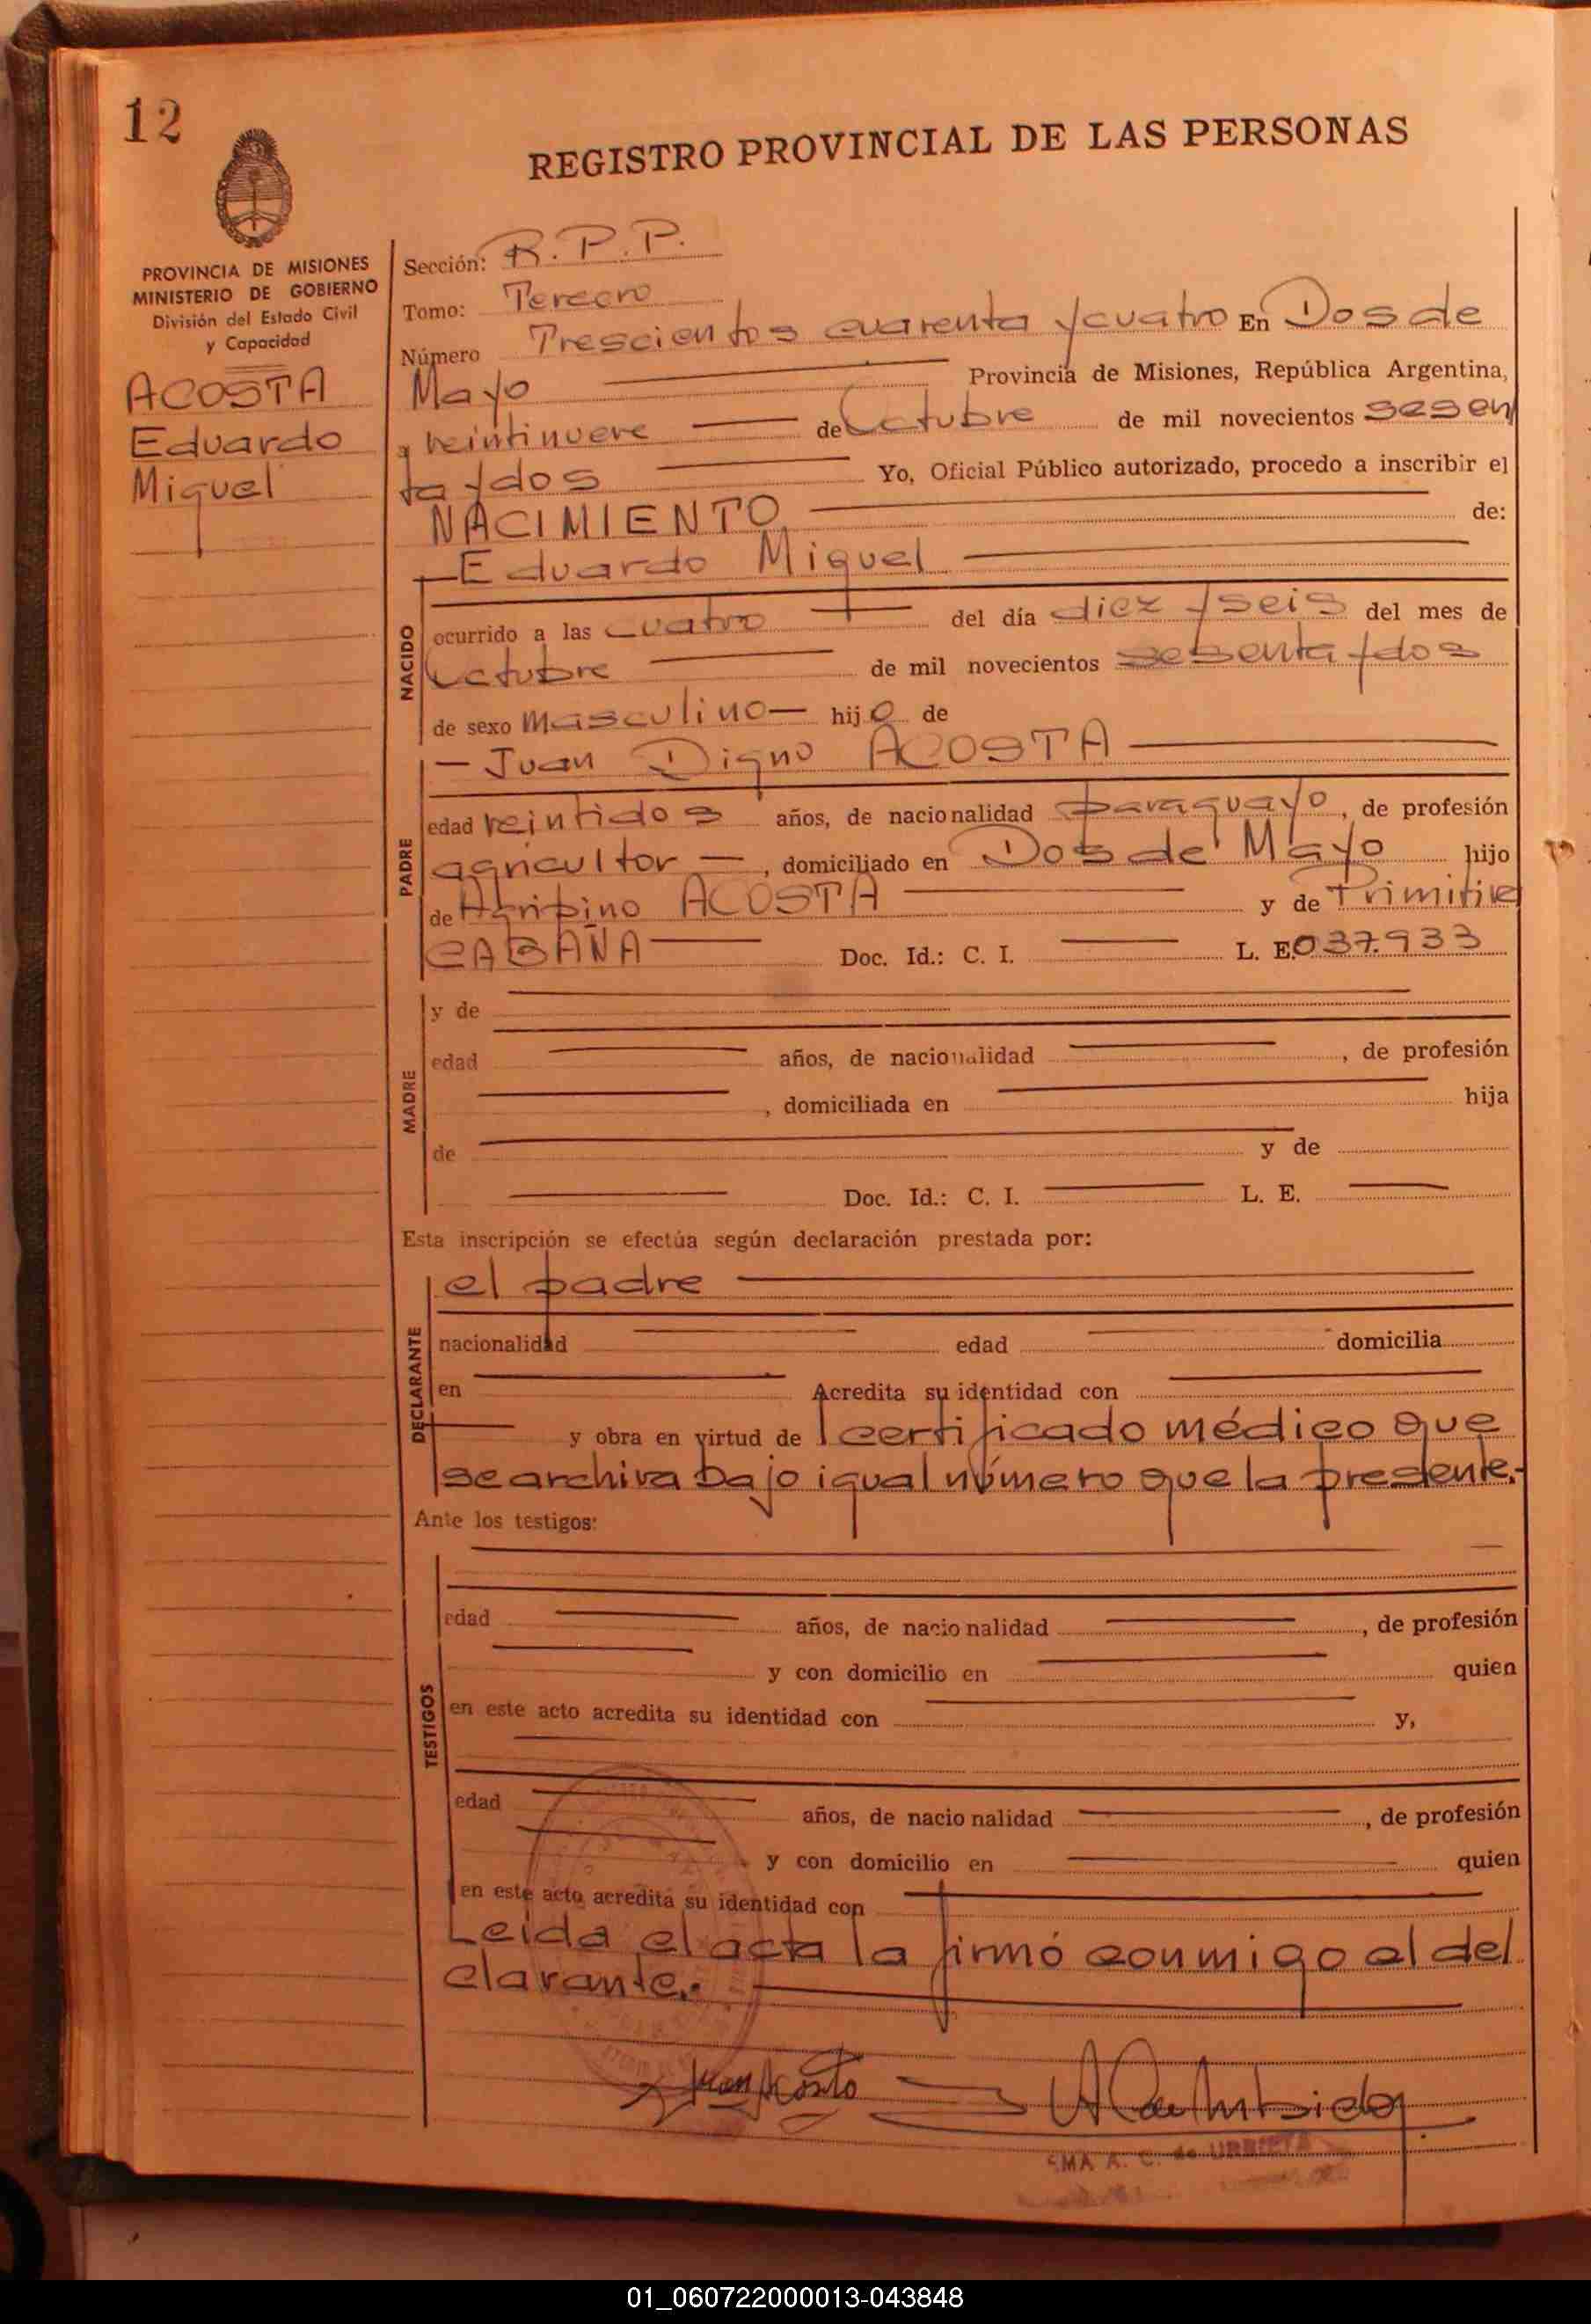 12
REGISTRO PROVINCIAL DE LAS PERSONAS
PROVINCIA DE MISIONES
MINISTERIO DE GOBIERNO
División del Estado Civil
y Capacidad
ACOSTA
Eduardo
Miguel
Sección: R. P. P.
Tomo: Tercero
Número Trescientos cuarenta y cuatro En Dos de
Mayo Provincia de Misiones, República Argentina,
a veintinueve de Octubre de mil novecientos sesen
ta y dos Yo, Oficial Público autorizado, procedo a inscribir el
NACIMIENTO de:
Eduardo Miguel
NACIDO
ocurrido a las cuatro del día diez y seis del mes de
Octubre de mil novecientos sesenta y dos
de sexo masculino hijo de
Juan Digno ACOSTA
PADRE
edad veintidos años, de nacionalidad paraguayo, de profesión
agricultor, domiciliado en Dos de Mayo hijo
de ACOSTA y de
CABAÑA Doc. Id.: C. I. L. E. 037.933
MADRE
y de
edad años, de nacionalidad , de profesión
, domiciliada en hija
de y de
Doc. Id.: C. I. L. E.
Esta inscripción se efectúa según declaración prestada por:
el padre
DECLARANTE
nacionalidad edad domicilia
en Acredita su identidad con
y obra en virtud de l certificado médico que
se archiva bajo igual número que la presente.-
Ante los testigos:
TESTIGOS
edad años, de nacionalidad , de profesión
y con domicilio en quien
en este acto acredita su identidad con y,
edad años, de nacionalidad , de profesión
y con domicilio en quien
en este acto acredita su identidad con
Leida el acta la firmó conmigo el del
clarante.-
Juan Acosta
A. C. de URRIETA
01_060722000013-043848